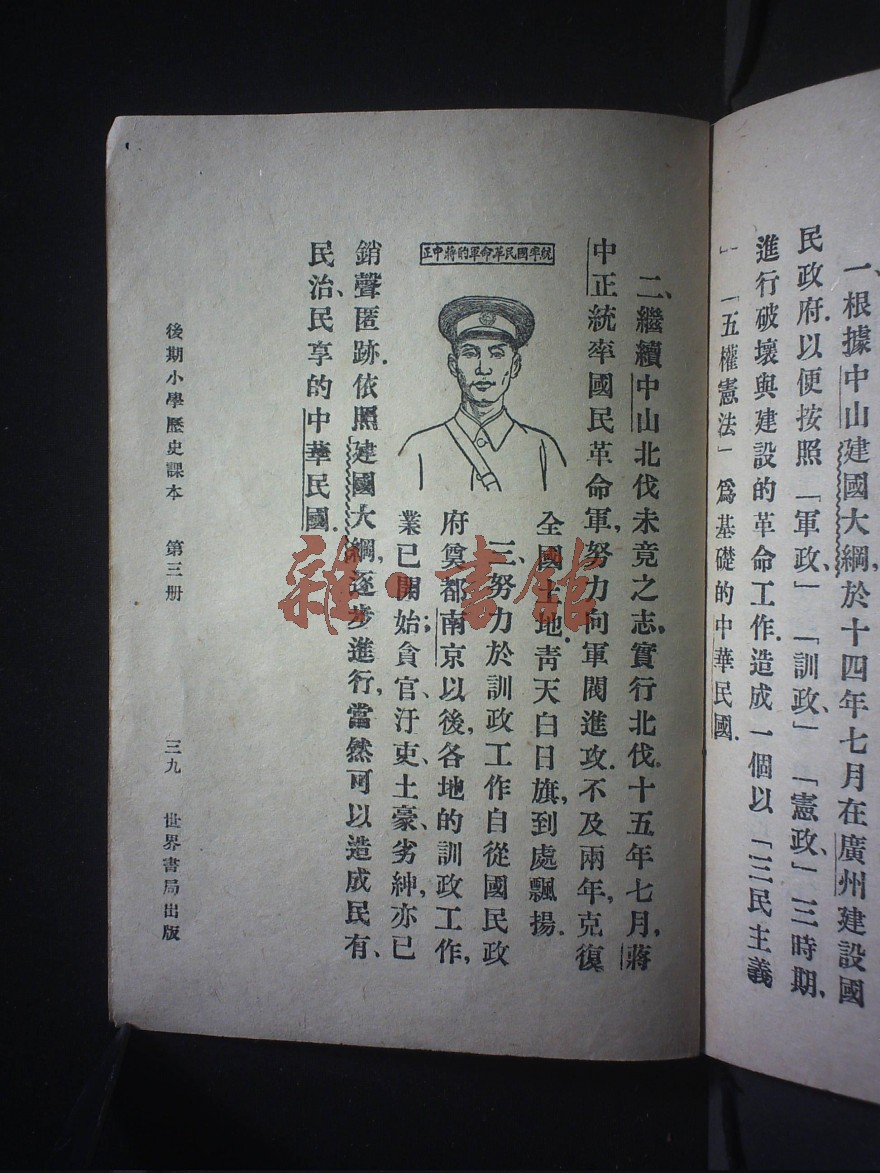 一、根據中山建國大綱於十四年七月在廣州建設國
民政府.以便按照「軍政」、「訓政」、「憲政」三時期,
進行破壞與建設的革命工作.造成一個以「三民主義
」「五權憲法」爲基礎的中華民國.
二、繼續中山北伐未竟之志,實行北伐.十五年七月,蔣
中正統率國民革命軍,努力向軍閥進攻.不及兩年,克復
全國土地.青天白日旗,到處飄揚.
統率國民革命軍的蔣中正
三、努力於訓政工作自從國民政
府奠都南京以後,各地的訓政工作,
業已開始;貪官、汙吏、土豪、劣紳,亦已
銷聲匿跡.依照建國大綱,逐步進行,當然可以造成民有、
民治、民享的中華民國.
後期小學歷史課本 第三册 三九 世界書局出版
雜·書館